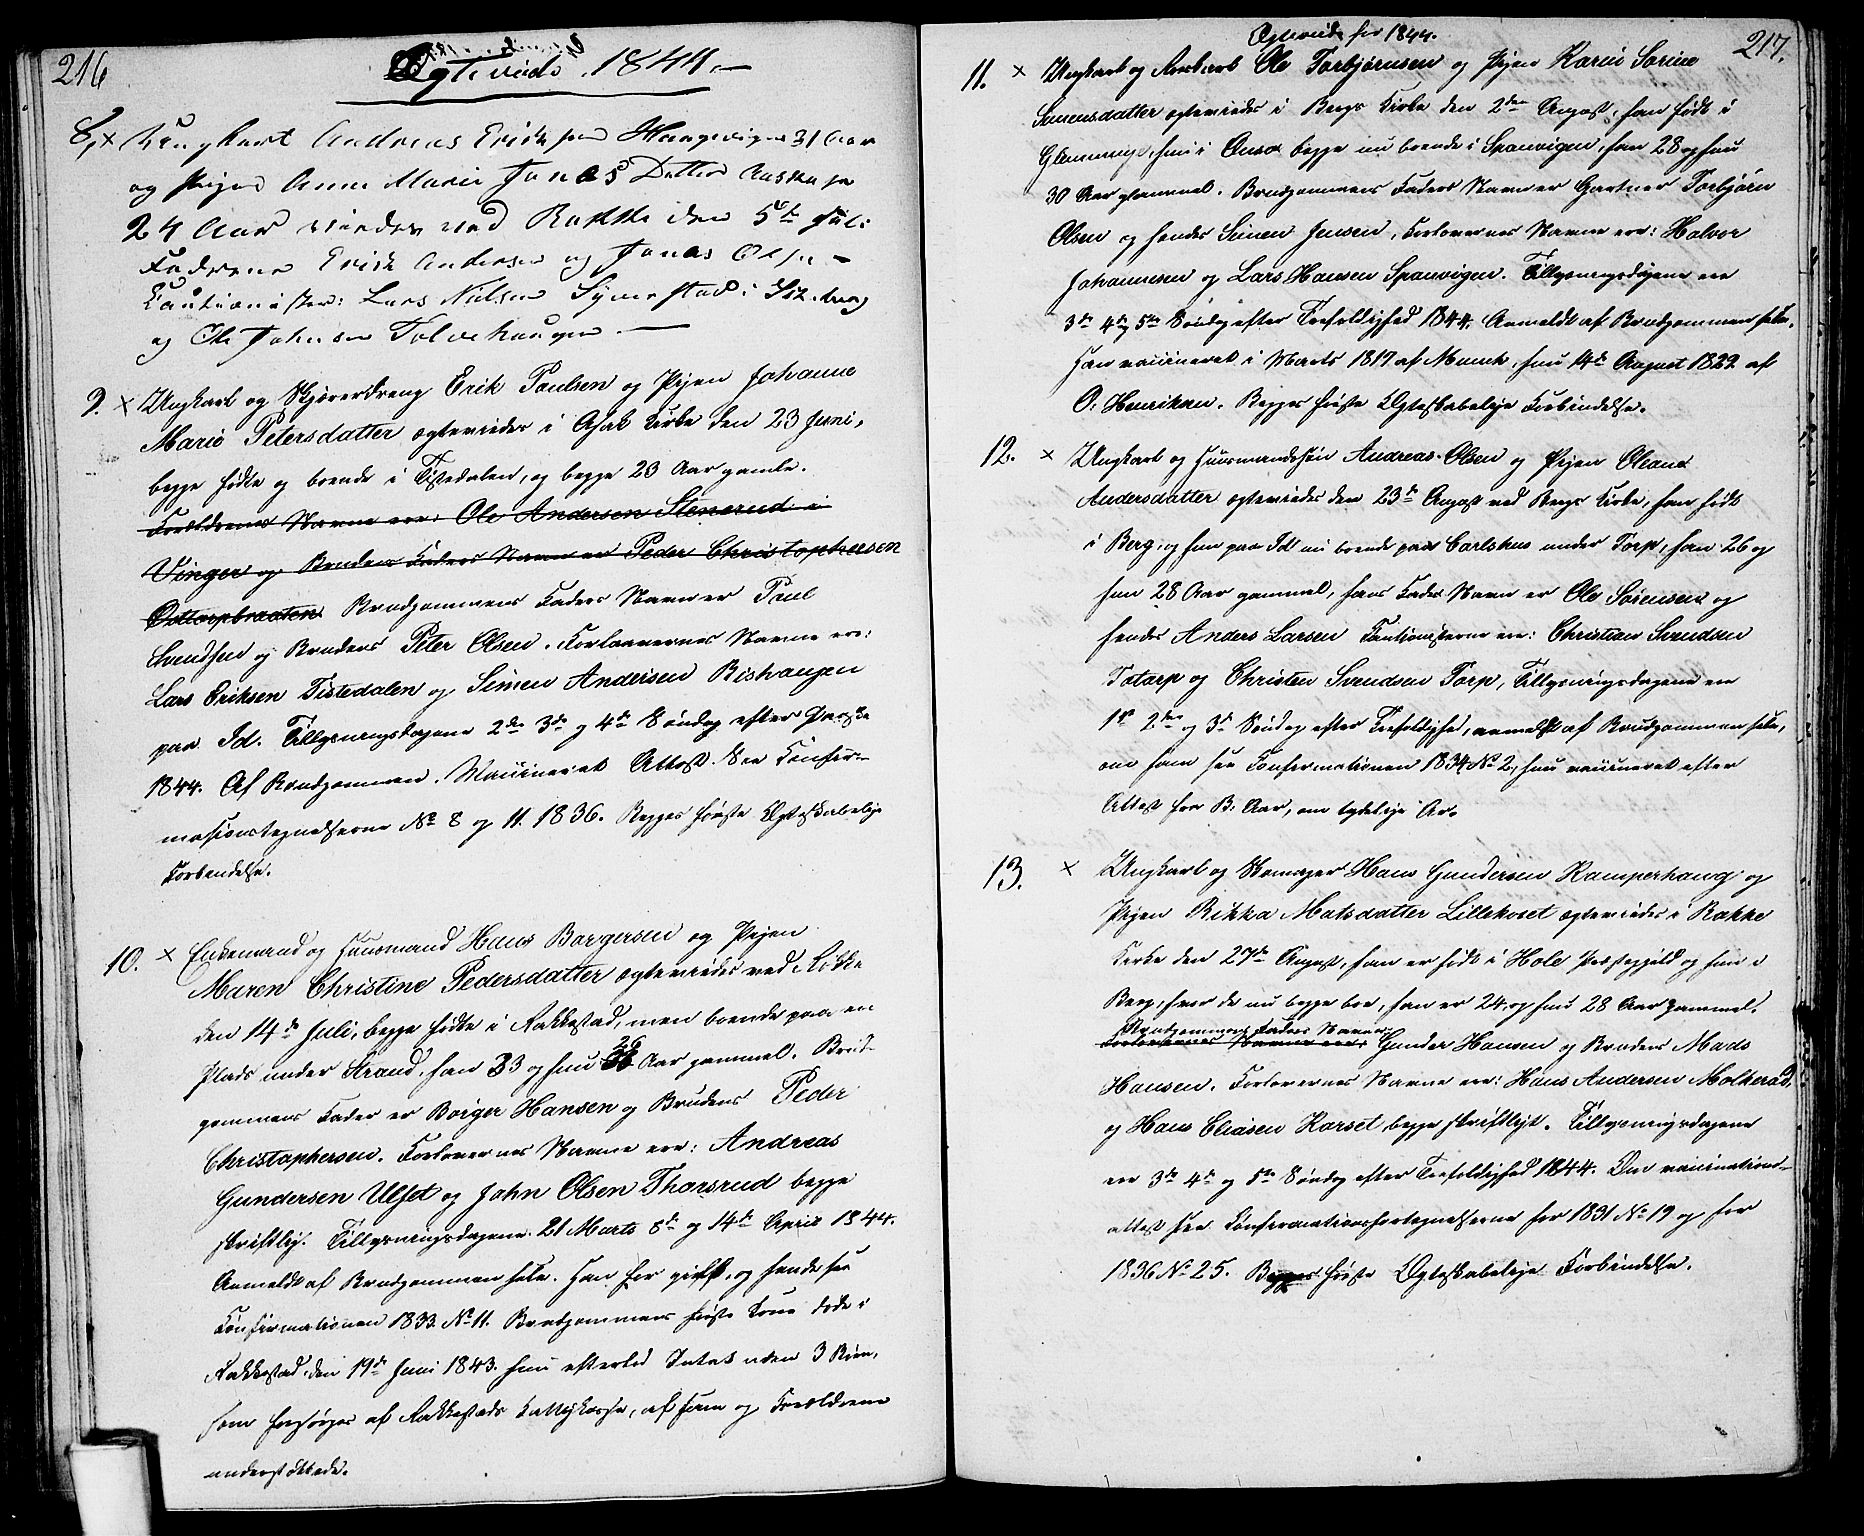 216
Ægteviede 1844.—
8, × Ungkarl Andreas Ericksen Haugevigen 31 Aar
og Pigen Anne Marie Jonas Datter
24 Aar viedes ved Rokke den 5te Juli
Fædrene Erick Andersen og Jonas Olsen —
Cautionister: Lars Nielsen i
og Ole Johnsen Tolvehaugen —
9. × Ungkarl og Skjøverdreng Erik Paulsen og Pigen Johanne
Marie Petersdatter ægteviedes i Asak Kirke den 23 Juni,
begge fødte og boende i Tistedalen, og begge 23 Aar gamle.
Forældrenes Navne ere: Ole Andersen Stenerud i
Vinger og Brudens Faders Navn er Peder Christophersen
Ødtorpbraaten. Brudgommens Faders Navn er Paul
Svendsen og Brudens Peter Olsen. Forlovernes Navne ere:
Lars Eriksen Tistedalen og Simen Andersen Rishaugen
paa Id. Tillysningsdagene 2den 3de og 4de Søndag efter Paaske
1844. Af Brudgommen. Vaccineret Attest. See Confir-
mationstegnelserne No 8 og 11. 1836. Begges første Ægteskabelige
Forbindelse.
10. × Enkemand og Huusmand Hans Borgersen og Pigen
Maren Christine Pedersdatter ægteviedes ved Rokke
den 14de Juli, begge fødte i Rakkestad, men boende paa en
Plads under Strand, han 33 og hun 26 Aar gammel. Brud-
gommens Fader er Borger Hansen og Brudens Peder
Christophersen. Forlovernes Navne ere: Andreas
Gundersen Ulset og John Olsen Thorsrud begge
skriftlig. Tillysningsdagene: 21 Marts 8de og 14de April 1844.
Anmeldt af Brudgommen selv. Han før gift, og hende see
Confirmationen 1833. No 11. Brudgommens første Kone døde i
Rakkestad den 19de Juni 1843. hun efterlod Intet uden 3 Børn,
som forsørges af Rakkestads Fattigkasse, af ham og Forældrene
understøttede.
Ægteviede for 1844.
217.
11. × Ungkarl og Ole Torbjørnsen og Pigen Karen Sorine
Simensdatter ægteviedes i Bergs Kirke den 2den August, han født i
Glemminge, hun i Onsø begge nu boende i Sponvigen, han 28 og hun
30 Aar gammel. Brudgommens Faders Navn er Gartner Torbjørn
Olsen og hendes Simen Jensen, Forlovernes Navne ere: Halvor
Johannesen og Lars Hansen Sponvigen. Tillysningsdagene ere
3de 4de og 5te Søndag efter Trefoldighed 1844. Anmeldt af Brudgommen selv.
Han vaccineret i Marts 1817 af Munch, hun 14de August 1822 af
O: Henriksen. Begges første Ægteskabelige Forbindelse.
12. × Ungkarl og Huusmandssøn Andreas Olsen og Pigen Oleana
Andersdatter ægteviedes den 23de August ved Bergs Kirke, han født
i Berg, og hun paa Id nu boende paa Carlshus under Torp, han 26 og
hun 28 Aar gammel, hans Faders Navn er Ole Sørensen og
hendes Anders Larsen Cautionisterne ere: Christian Svendsen
Totorp og Christen Svendsen Torp, Tillysningsdagene ere
1ste 2den og 3de Søndag efter Trefoldighed, anmeldt af Brudgommen selv,
om ham see Confirmationen 1834 No 2, hun vaccineret efter
Attest for B: Aar, om tydelige Ar.
13. × Ungkarl og Skomager Hans Gundersen Kamperhaug og
Pigen Rikka Matsdatter Lillekaset ægteviedes i Rokke
Kirke den 27de August, han er født i Hole Præstegjeld og hun i
Berg, hvor de nu begge boe, han er 24 og hun 28 Aar gammel.
Brudgommens Faders Navn er
Forlovernes Navne ere: Gunder Hansen og Brudens Mads
Hansen. Forlovernes Navne ere: Hans Andersen Molkerød
og Hans Eliasen Korset begge skriftligt. Tillysningsdagene
ere 3de 4de og 5te Søndag efter Trefoldighed 1844. Om vaccinations-
attest see Confirmationsfortegnelserne for 1831 No 19 og for
1836 No 25. Begges første Ægteskabelige Forbindelse.